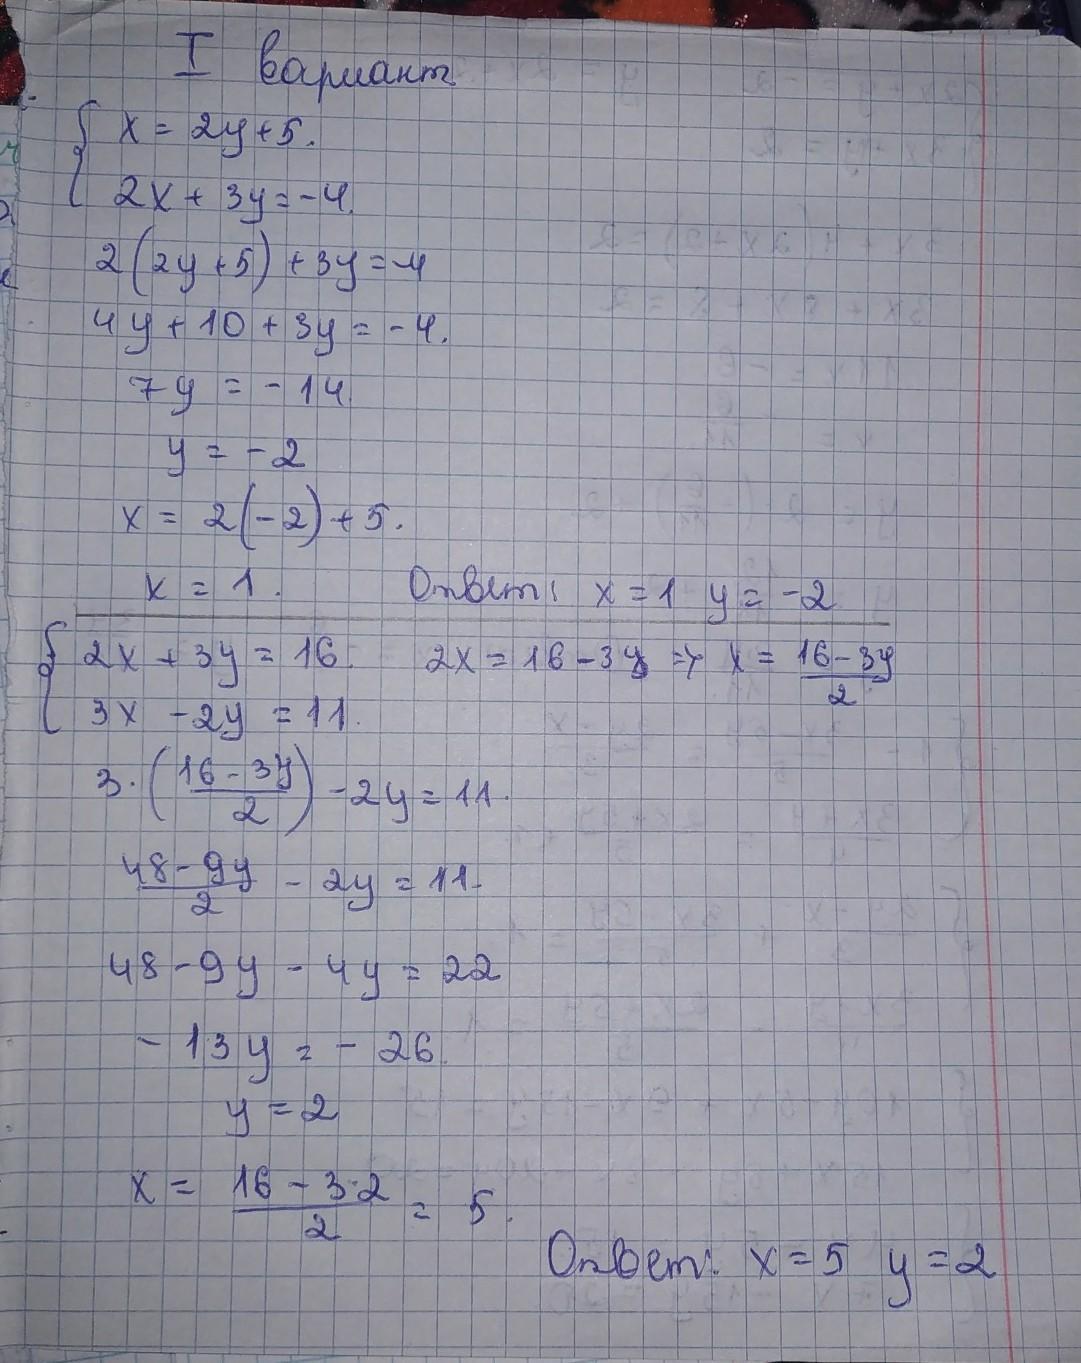 I вариант
{ x = 2y+5.
2x + 3y = -4.
2(2y+5) + 3y = -4
4y + 10 + 3y = -4.
7y = -14.
y = -2
x = 2(-2) + 5.
x = 1. Ответ: x = 1 y = -2
{ 2x + 3y = 16. 2x = 16 - 3y => x = (16 - 3y)/2
3x - 2y = 11.
3·((16 - 3y)/2) - 2y = 11.
(48 - 9y)/2 - 2y = 11.
48 - 9y - 4y = 22
-13y = -26.
y = 2
x = (16 - 3·2)/2 = 5.
Ответ: x = 5 y = 2